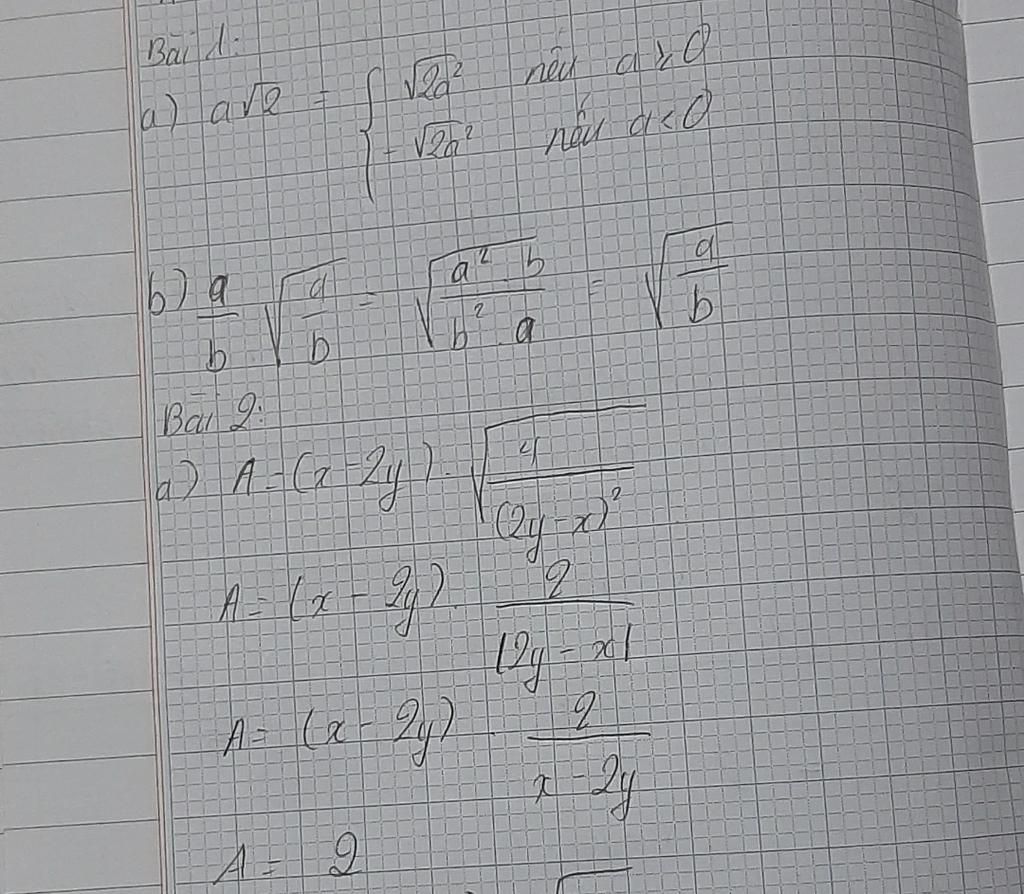 Bài 1:
a) a√2 = { √2a² nếu a ≥ 0
- √2a² nếu a < 0
b) a/b √(a/b) = √(a² b / b² a) = √(a/b)
Bài 2:
a) A = (x - 2y) . √(4 / (2y - x)²)
A = (x - 2y) . 2 / |2y - x|
A = (x - 2y) . 2 / (x - 2y)
A = 2